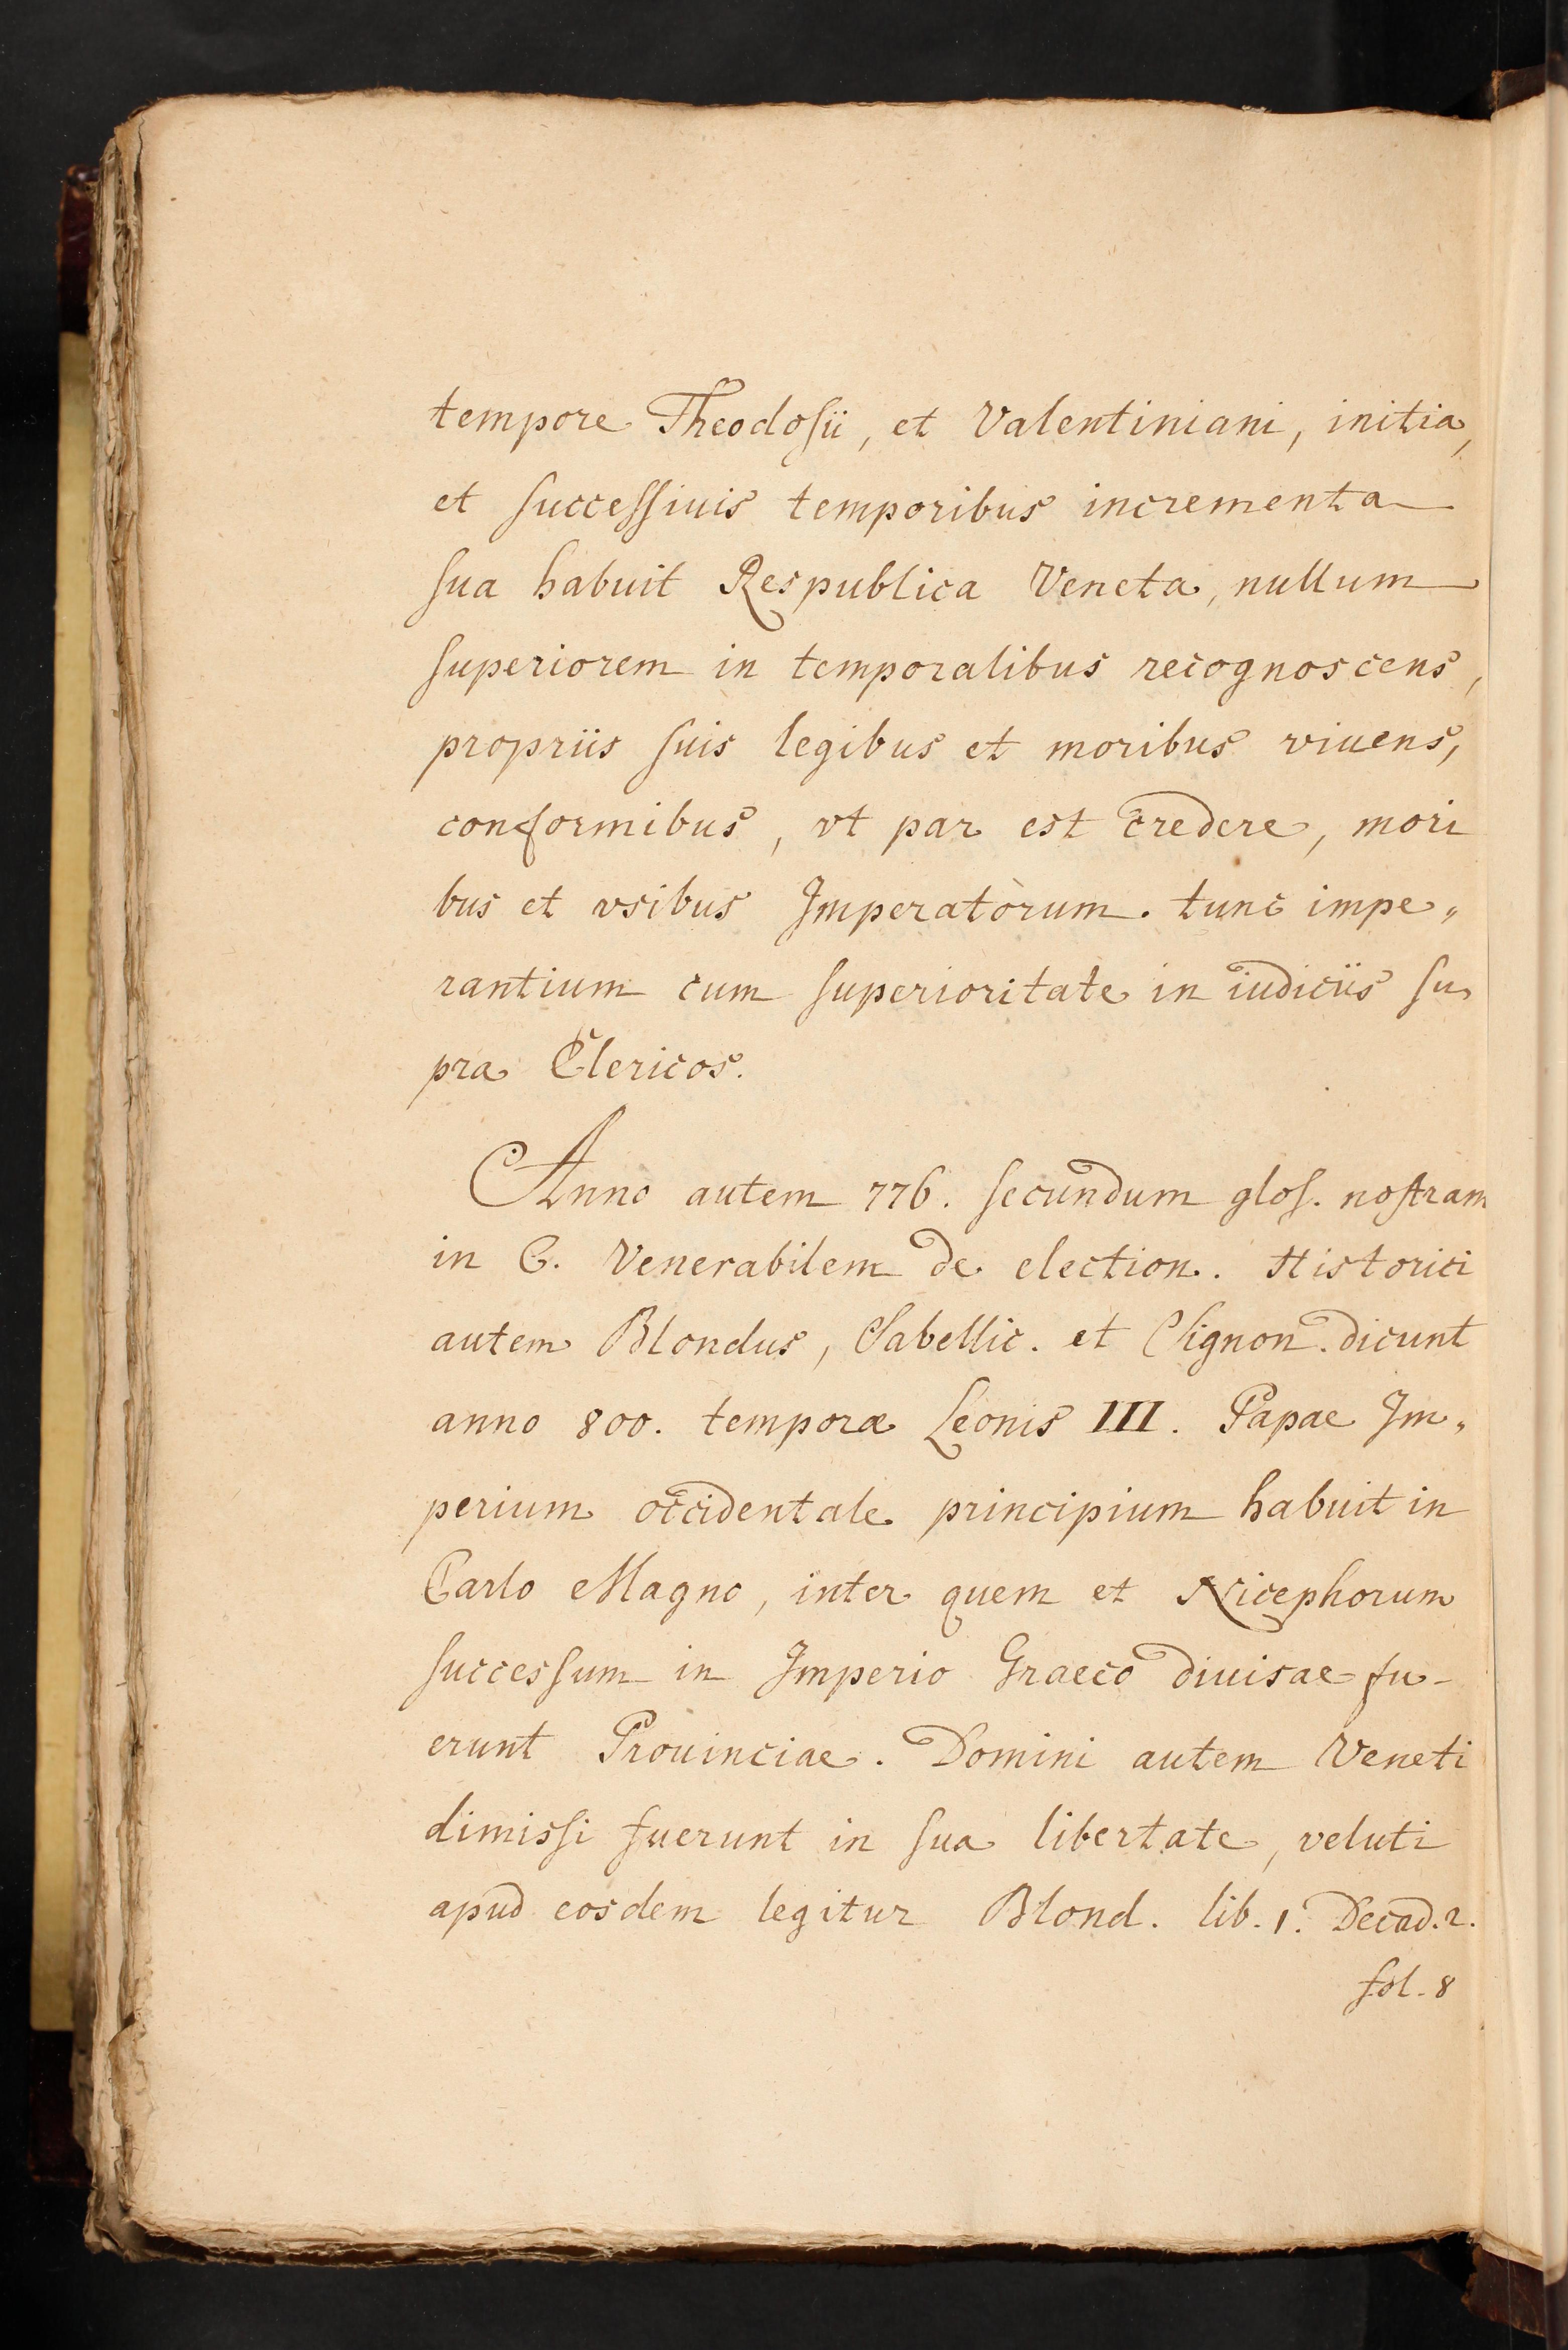 tempore Theodosii, et Valentiniani, initia,
et successiuis temporibus incrementa
sua habuit Respublica Veneta, nullum
superiorem in temporalibus recognoscens,
propriis suis legibus et moribus viuens,
conformibus, vt par est credere, mori
bus et vsibus Imperatòrum. tunc impe„
rantium cum superioritate in iudiciis su
pra Clericos.
Anno autem 776. secundum glos. nostram
in C. Venerabilem de election. Historici
autem Blondus, Sabellic. et Signon. dicunt
anno 800. tempore Leonis III. Papae Im„
perium occidentale principium habuit in
Carlo Magno, inter quem et Nicephorum
successum in Imperio Graeco diuisae fu-
erunt Prouinciae. Domini autem Veneti
dimissi fuerunt in sua libertate, veluti
apud eosdem legitur Blond. lib. 1. Decad. 2.
fol. 8